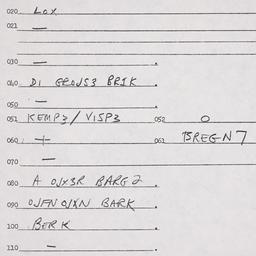 020 Lox
021 —
030 — .
040 DI GROWS3 BRIK .
050 — .
051 KEMP3/VISP3 052 O
060 + . 061 BREGN7
070 —
080 A OJX3R BARG2 .
090 OJFN OJXN BARK .
100 BERK .
110 — .